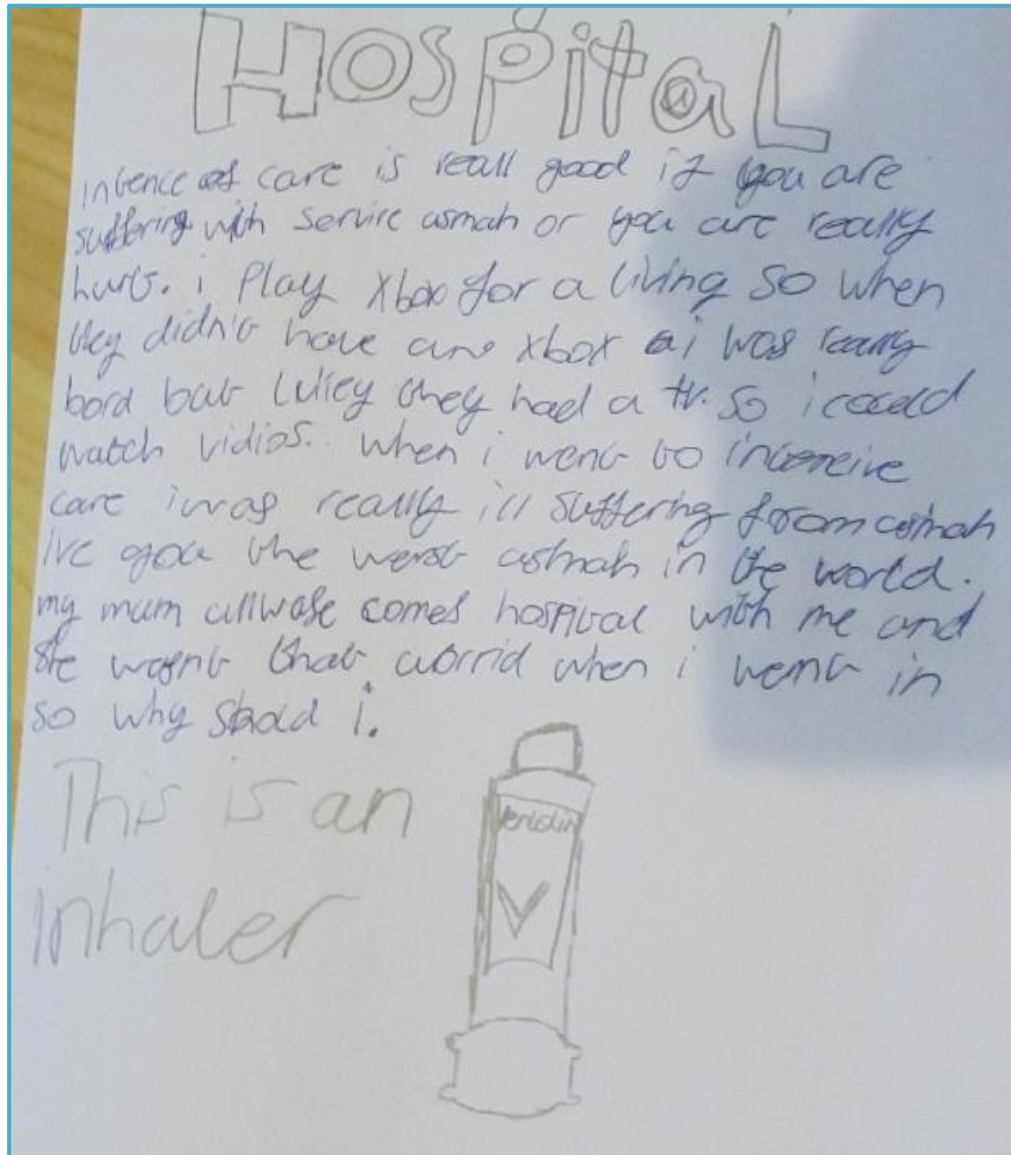 HospitaL
intence of care is reall good if you are
suffering with servire asmah or you are really
hurt. i Play xbox for a living so when
they didn't have any xbox i was really
bord but luticy they had a tv. so i could
watch vidios. when i went to incencive
care i was really ill suffering from asmah
ive you the werst asmah in the world.
my mum allwase comes hospital with me and
she wasnt that worrid when i went in
so why shoad i.
This is an
inhaler
Ventolin
V